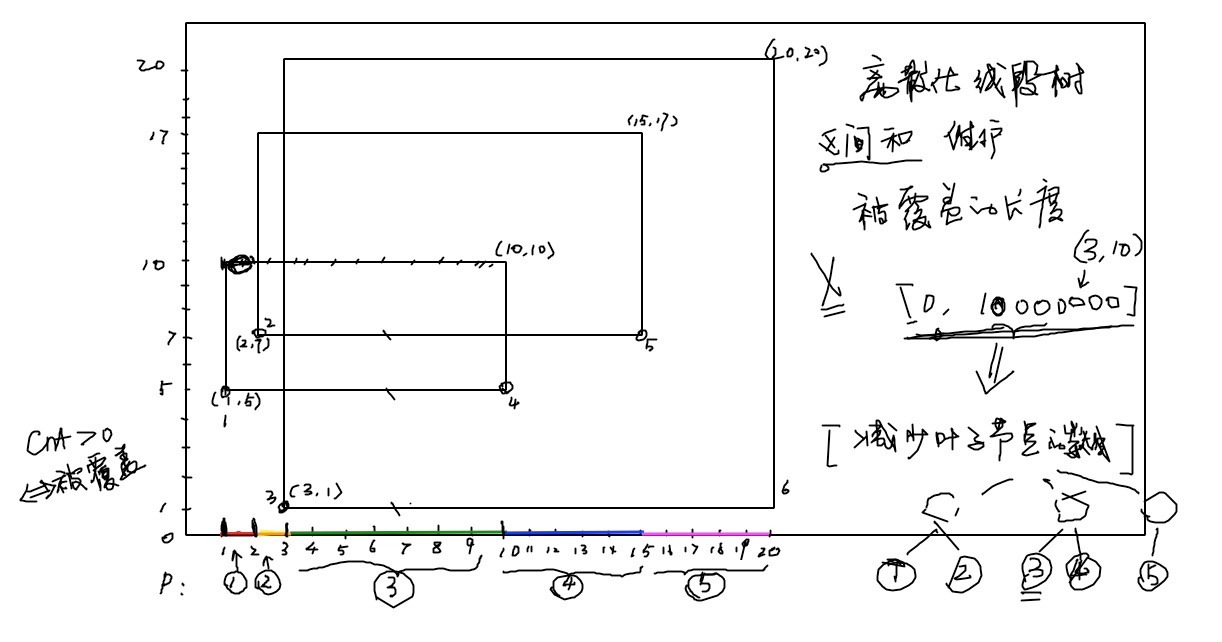 20
17
10
7
5
1
0
(20,20)
(15,17)
(10,10)
2
(2,7)
5
(1,5)
1
4
3 (3,1)
6
cnt>0
⇔被覆盖
1 2 3 4 5 6 7 8 9 10 11 12 13 14 15 16 17 18 19 20
P: ① ② ③ ④ ⑤
离散化线段树
区间和 维护
被覆盖的长度
(3,10)
X [0, 10000000]
⇓
[减少叶子节点的数域]
① ② ③ ④ ⑤